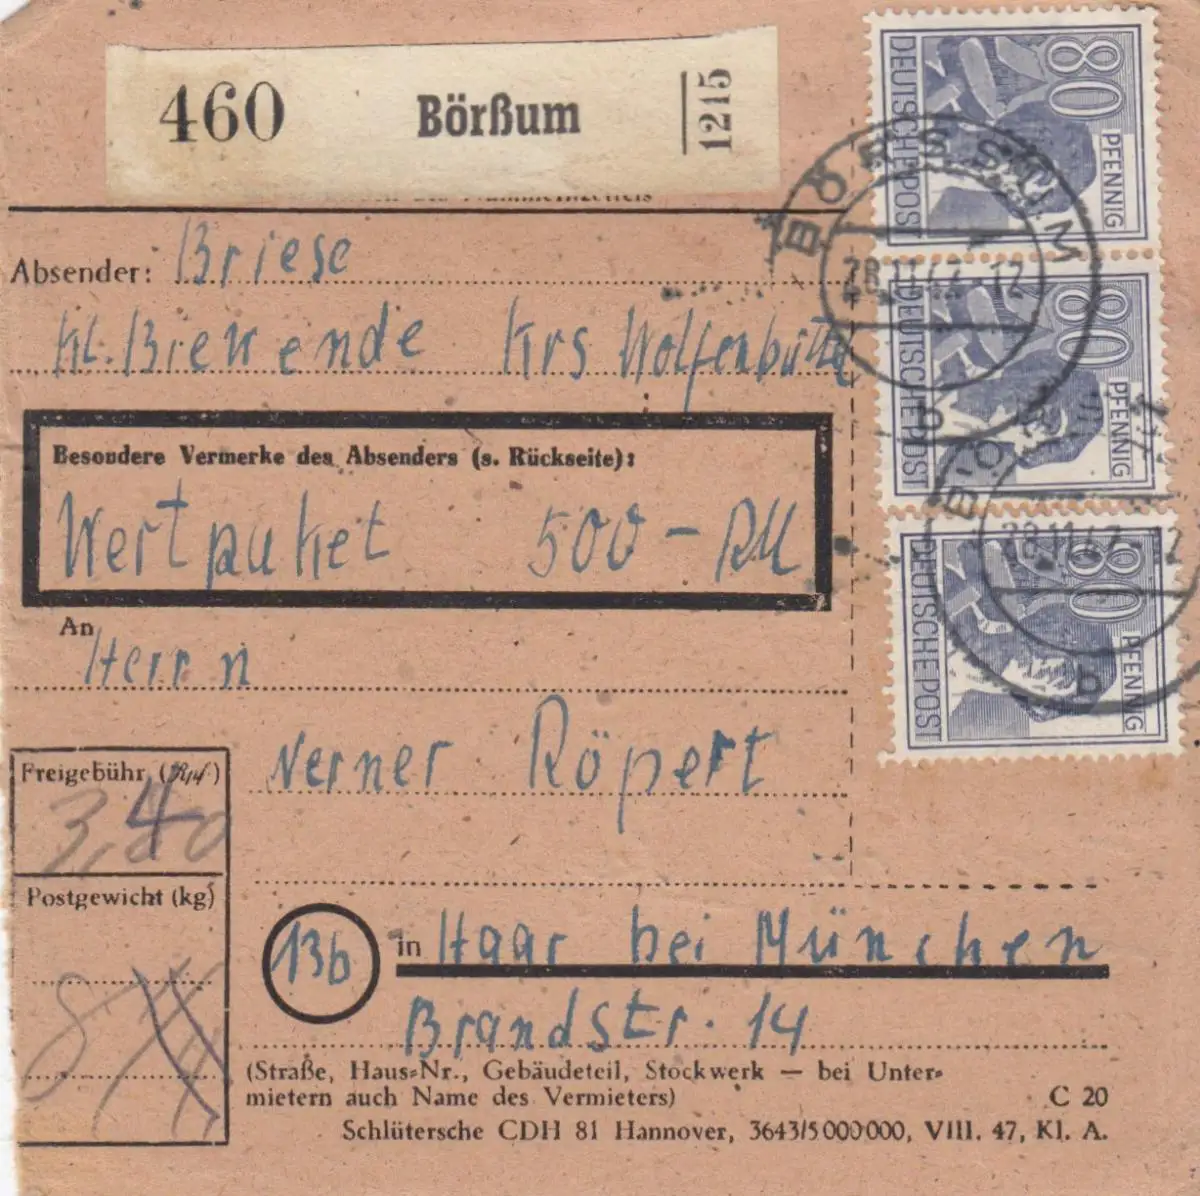 460 Börßum 1215
Absender: Briese
Kl. Biewende Krs Wolfenbütte
Besondere Vermerke des Absenders (s. Rückseite):
Wertpaket 500 - RM
An
Herrn
Werner Röpert
Freigebühr (Rpf)
Postgewicht (kg)
13b in Haar bei München
Brandstr. 14
(Straße, Haus-Nr., Gebäudeteil, Stockwerk — bei Unter-
mietern auch Name des Vermieters)
C 20
Schlütersche CDH 81 Hannover, 3643/5 000 000, VIII. 47, Kl. A.
80 PFENNIG
DEUTSCHE POST
80 PFENNIG
DEUTSCHE POST
80 PFENNIG
DEUTSCHE POST
BÖRSSUM
28.11.47.-12
b